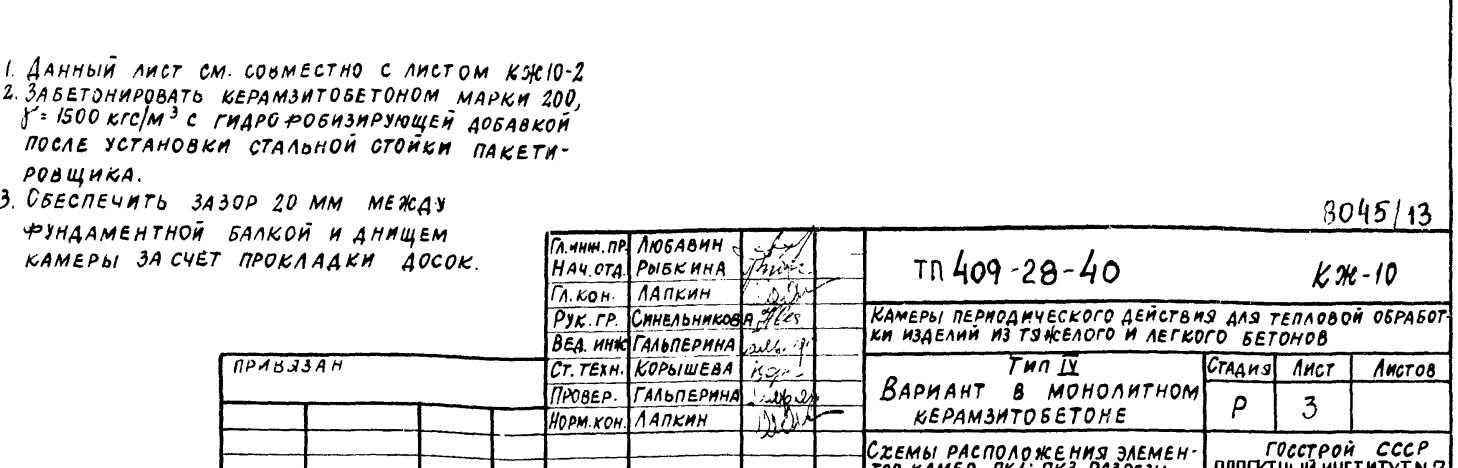 1. Данный лист см. совместно с листом КЖ10-2
2. Забетонировать керамзитобетоном марки 200,
γ = 1500 кгс/м³ с гидрофобизирующей добавкой
после установки стальной стойки пакети-
ровщика.
3. Обеспечить зазор 20 мм между
фундаментной балкой и днищем
камеры за счёт прокладки досок.
8045/13
Гл.инж.пр. Любавин
Нач.отд. Рыбкина
Гл.кон. Лапкин
Рук.гр. Синельникова
Вед.инж Гальперина
Ст.техн. Корышева
Провер. Гальперина
Норм.кон. Лапкин
Привязан
ТП 409-28-40 КЖ-10
Камеры периодического действия для тепловой обработ-
ки изделий из тяжелого и легкого бетонов
Тип IV
Вариант в монолитном
керамзитобетоне
Стадия Лист Листов
Р 3
Схемы расположения элемен-
Госстрой СССР